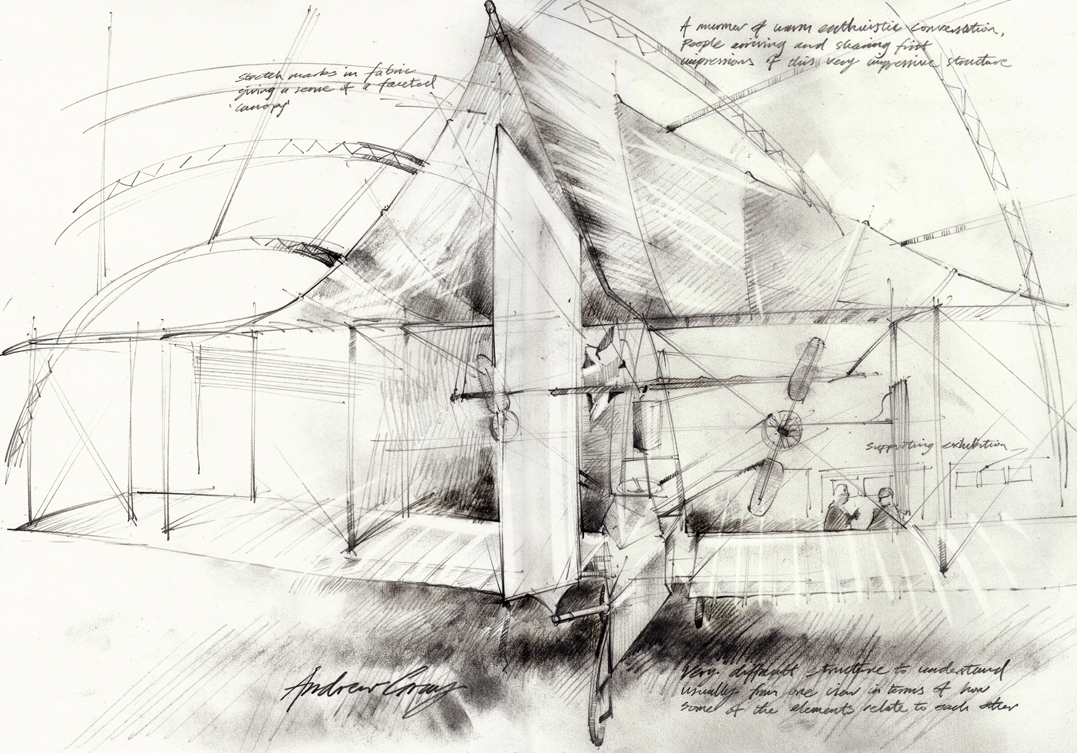 A murmer of warm enthuistic conversation,
People arriving and sharing first
impressions of this very impressive structure
Stretch marks in fabric
giving a sense of a faceted
'canopy'
Supporting exhibition
Very difficult structure to understand
usually from one view in terms of how
some of the elements relate to each other
Andrew Gray